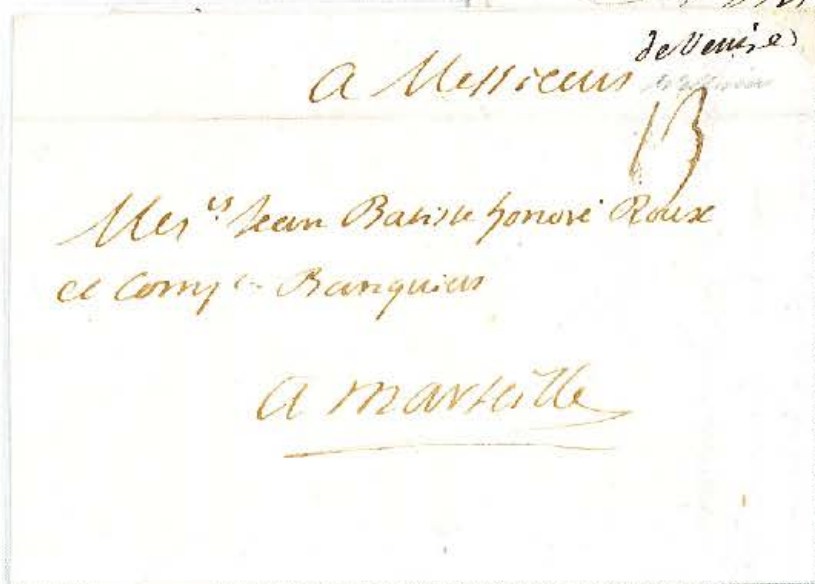 de Venise
A Messieurs
13
Mes.rs Jean Batiste honoré Roux
et Comp.e Banquiers
A marseille